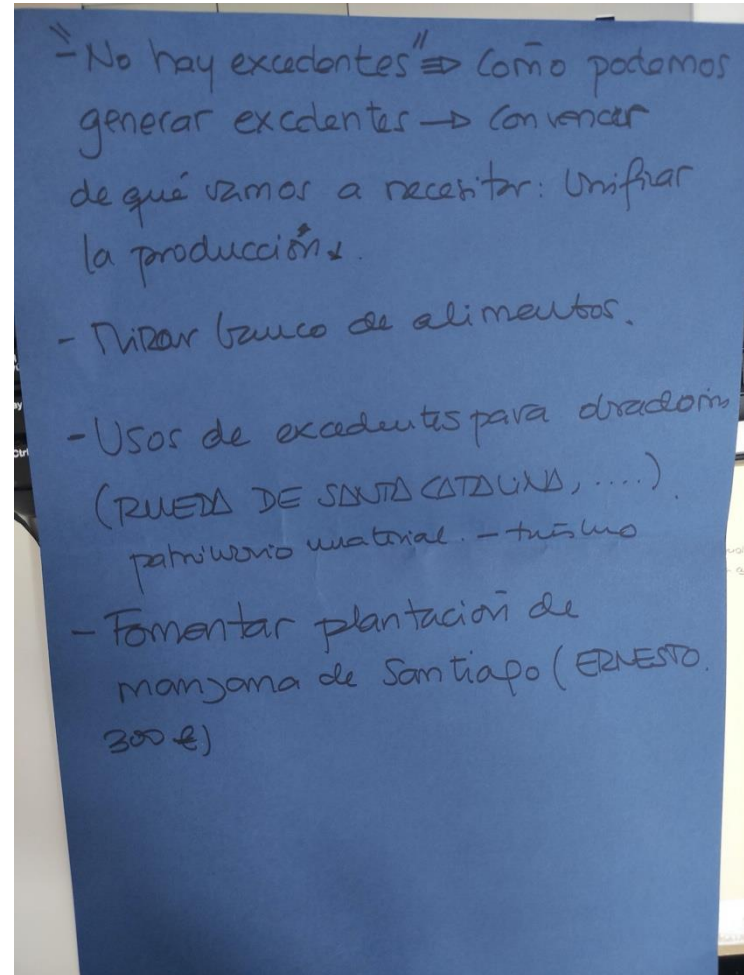 - "No hay excedentes" ⇒ Como podemos
generar excedentes → Convencer
de qué vamos a necesitar: Unificar
la producción.
- Mirar banco de alimentos.
- Usos de excedentes para
(RUEDA DE SANTA CATALINA, ....).
patrimonio - turismo
- Fomentar plantación de
manzana de Santiago (ERNESTO.
300 €)